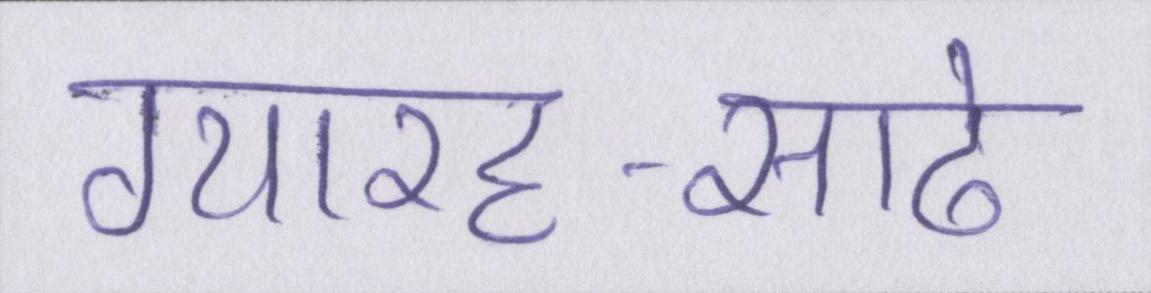 ग्यारह-साढे